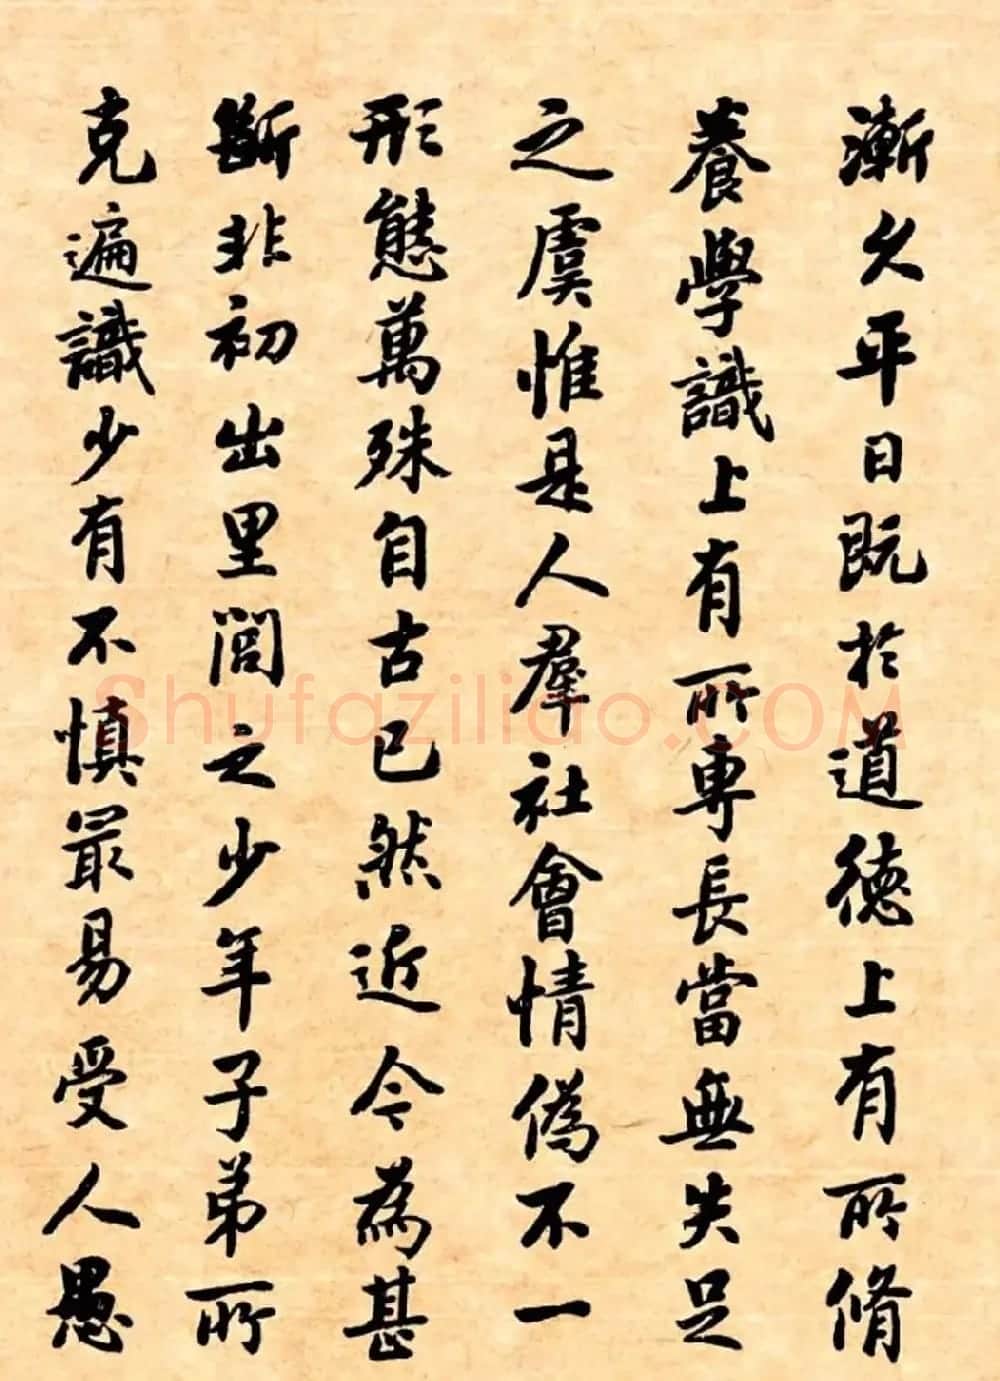 漸久平日既於道德上有所脩
養學識上有所專長當無失足
之虞惟是人羣社會情偽不一
形態萬殊自古已然近今為甚
斷非初出里閭之少年子弟所
克遍識少有不慎最易受人愚
Shufaziliao.COM